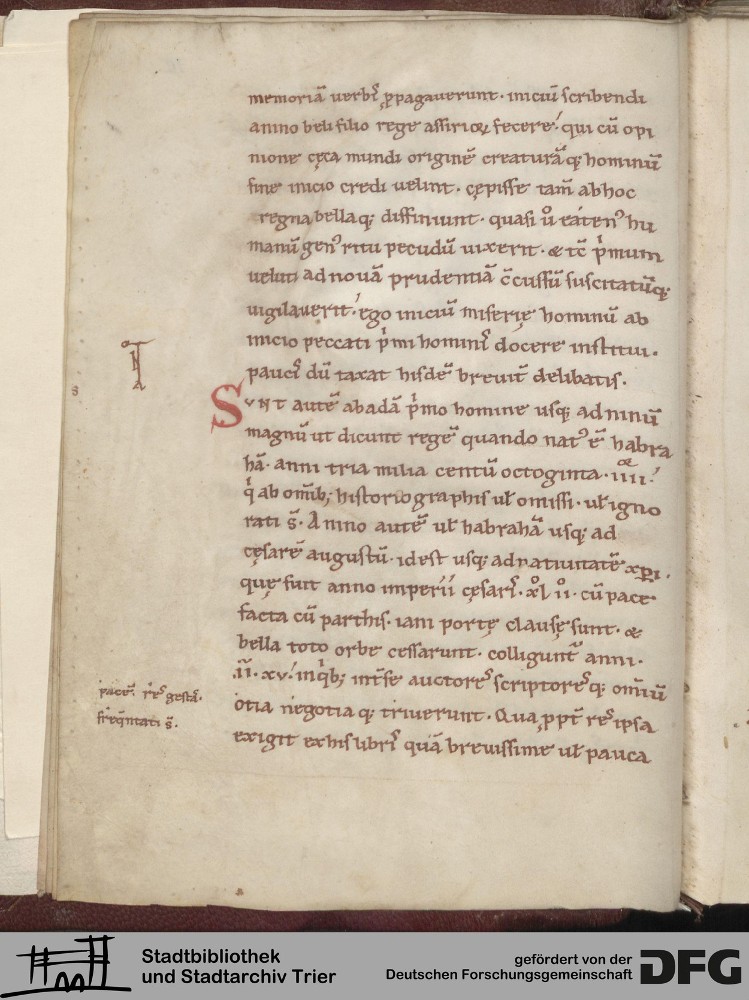 memoriā uerbꝭ ꝓpagauerunt · iniciū scribendi
anino beli filio rege assirioꝝ fecere · qui cū opi
nione cęca mundi originē creaturāq; hominū
sine inicio credi uelint · cępisse tam̄ ab hoc
regna bellaq; diffiniunt · quasi ů eátenꝰ hu
manū genꝰ ritu pecudū uixerit · & tc̄ p̍mum
ueluti ad nouā prudentiā c̄cussū suscitatūq;
uigilauerit · ego iniciū miserię hominū ab
inicio peccati p̍mi hominꝭ docere institui ·
paucꝭ dū taxat hisdē breuit̄ delibatis ·
Sunt autē ab adā p̍mo homine usq; ad ninū
magnū ut dicunt regē quando natꝰ ē habra
hā · anni tria milia centū octoginta · iiii ·
q̍ ab om̄ib; historiographis uł omissi · uł igno
rati s̄ · A nino autē uł habrahā usq; ad
cęsarē augustū · id est usq; ad natiuitatē xp̄i ·
que fuit anno imperii cęsarꝭ · xl ii · cū pace
facta cū parthis · iam portę clausę sunt · &
bella toto orbe cessarunt · colligunt̄ anni ·
.īī · xv · in q̍b; int̄ se auctoreˢ scriptoreˢq; om̄iū
otia negotia q; triuerunt · Qua ꝓpt̄ reˢ ipsa
exigit ex his librꝭ quā breuissime uł pauca
pacē · reˢ gestā ·
freq̄ntati s̄ ·
Stadtbibliothek
und Stadtarchiv Trier
gefördert von der
Deutschen Forschungsgemeinschaft
DFG